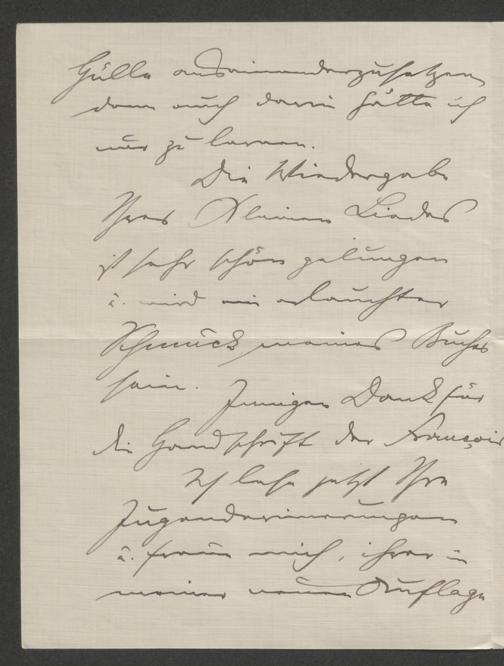 Hülle auseinanderzusetzen
denn auch darin hätte ich
nur zu lernen.
Die Wiedergabe
Ihres kleinen Liedes
ist sehr schön gelungen
u. wird ein erlauchter
Schmuck meines Buches
sein. Innigen Dank für
die Handschrift der François
Ich lese jetzt Ihre
Jugenderinnerungen
u. freue mich, ihrer in
meiner neuen Auflage